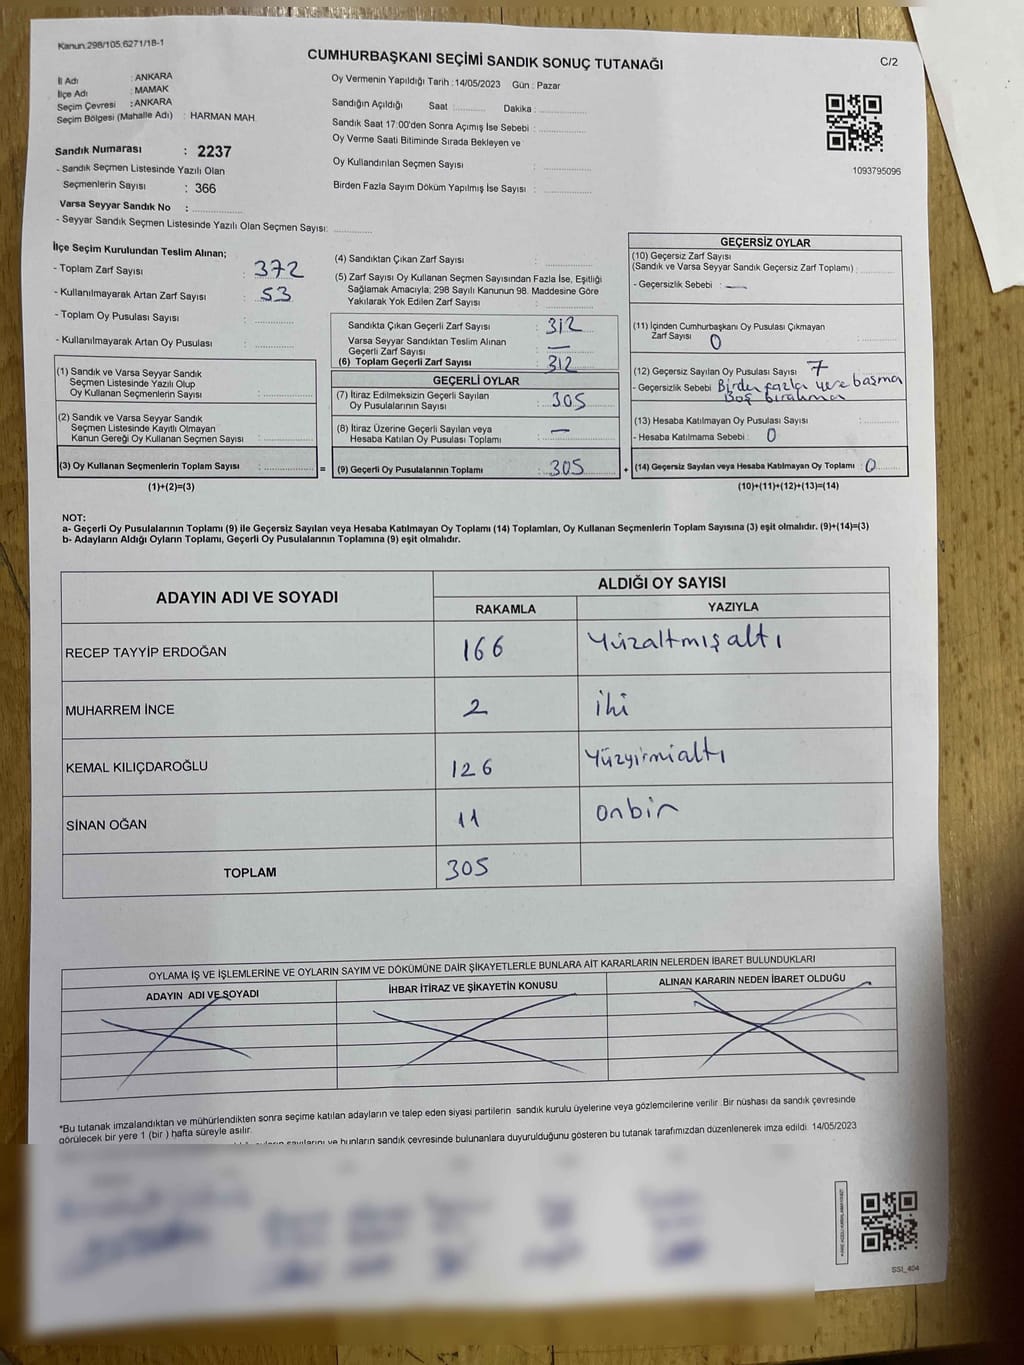 Kanun:298/105.6271/18-1
CUMHURBAŞKANI SEÇİMİ SANDIK SONUÇ TUTANAĞI
C/2
İl Adı : ANKARA
İlçe Adı : MAMAK
Seçim Çevresi : ANKARA
Seçim Bölgesi (Mahalle Adı) : HARMAN MAH.
Sandık Numarası : 2237
- Sandık Seçmen Listesinde Yazılı Olan
Seçmenlerin Sayısı : 366
Varsa Seyyar Sandık No :
- Seyyar Sandık Seçmen Listesinde Yazılı Olan Seçmen Sayısı:
Oy Vermenin Yapıldığı Tarih : 14/05/2023 Gün : Pazar
Sandığın Açıldığı Saat : Dakika :
Sandık Saat 17:00'den Sonra Açımış İse Sebebi :
Oy Verme Saati Bitiminde Sırada Bekleyen ve
Oy Kullandırılan Seçmen Sayısı :
Birden Fazla Sayım Döküm Yapılmış İse Sayısı :
1093795096
İlçe Seçim Kurulundan Teslim Alınan;
- Toplam Zarf Sayısı : 372
- Kullanılmayarak Artan Zarf Sayısı : 53
- Toplam Oy Pusulası Sayısı :
- Kullanılmayarak Artan Oy Pusulası :
(1) Sandık ve Varsa Seyyar Sandık
Seçmen Listesinde Yazılı Olup
Oy Kullanan Seçmenlerin Sayısı :
(2) Sandık ve Varsa Seyyar Sandık
Seçmen Listesinde Kayıtlı Olmayan
Kanun Gereği Oy Kullanan Seçmen Sayısı :
(3) Oy Kullanan Seçmenlerin Toplam Sayısı : =
(1)+(2)=(3)
(4) Sandıktan Çıkan Zarf Sayısı :
(5) Zarf Sayısı Oy Kullanan Seçmen Sayısından Fazla İse, Eşitliği
Sağlamak Amacıyla; 298 Sayılı Kanunun 98. Maddesine Göre
Yakılarak Yok Edilen Zarf Sayısı :
Sandıkta Çıkan Geçerli Zarf Sayısı : 312
Varsa Seyyar Sandıktan Teslim Alınan
Geçerli Zarf Sayısı : —
(6) Toplam Geçerli Zarf Sayısı : 312
GEÇERLİ OYLAR
(7) İtiraz Edilmeksizin Geçerli Sayılan
Oy Pusulalarının Sayısı : 305
(8) İtiraz Üzerine Geçerli Sayılan veya
Hesaba Katılan Oy Pusulası Toplamı : —
(9) Geçerli Oy Pusulalarının Toplamı : 305 +
GEÇERSİZ OYLAR
(10) Geçersiz Zarf Sayısı
(Sandık ve Varsa Seyyar Sandık Geçersiz Zarf Toplamı) :
- Geçersizlik Sebebi : —
(11) İçinden Cumhurbaşkanı Oy Pusulası Çıkmayan
Zarf Sayısı : 0
(12) Geçersiz Sayılan Oy Pusulası Sayısı : 7
- Geçersizlik Sebebi : Birden fazla yere basma
Boş bırakma
(13) Hesaba Katılmayan Oy Pusulası Sayısı :
- Hesaba Katılmama Sebebi : 0
(14) Geçersiz Sayılan veya Hesaba Katılmayan Oy Toplamı : 0
(10)+(11)+(12)+(13)=(14)
NOT:
a- Geçerli Oy Pusulalarının Toplamı (9) ile Geçersiz Sayılan veya Hesaba Katılmayan Oy Toplamı (14) Toplamları, Oy Kullanan Seçmenlerin Toplam Sayısına (3) eşit olmalıdır. (9)+(14)=(3)
b- Adayların Aldığı Oyların Toplamı, Geçerli Oy Pusulalarının Toplamına (9) eşit olmalıdır.
ADAYIN ADI VE SOYADI ALDIĞI OY SAYISI
RAKAMLA YAZIYLA
RECEP TAYYİP ERDOĞAN 166 Yüzaltmışaltı
MUHARREM İNCE 2 iki
KEMAL KILIÇDAROĞLU 126 Yüzyirmialtı
SİNAN OĞAN 11 onbir
TOPLAM 305
OYLAMA İŞ VE İŞLEMLERİNE VE OYLARIN SAYIM VE DÖKÜMÜNE DAİR ŞİKAYETLERLE BUNLARA AİT KARARLARIN NELERDEN İBARET BULUNDUKLARI
ADAYIN ADI VE SOYADI İHBAR İTİRAZ VE ŞİKAYETİN KONUSU ALINAN KARARIN NEDEN İBARET OLDUĞU
*Bu tutanak imzalandıktan ve mühürlendikten sonra seçime katılan adayların ve talep eden siyasi partilerin sandık kurulu üyelerine veya gözlemcilerine verilir. Bir nüshası da sandık çevresinde
görülecek bir yere 1 (bir ) hafta süreyle asılır.
sayılarını ve bunların sandık çevresinde bulunanlara duyurulduğunu gösteren bu tutanak tarafımızdan düzenlenerek imza edildi. 14/05/2023
SSI_404